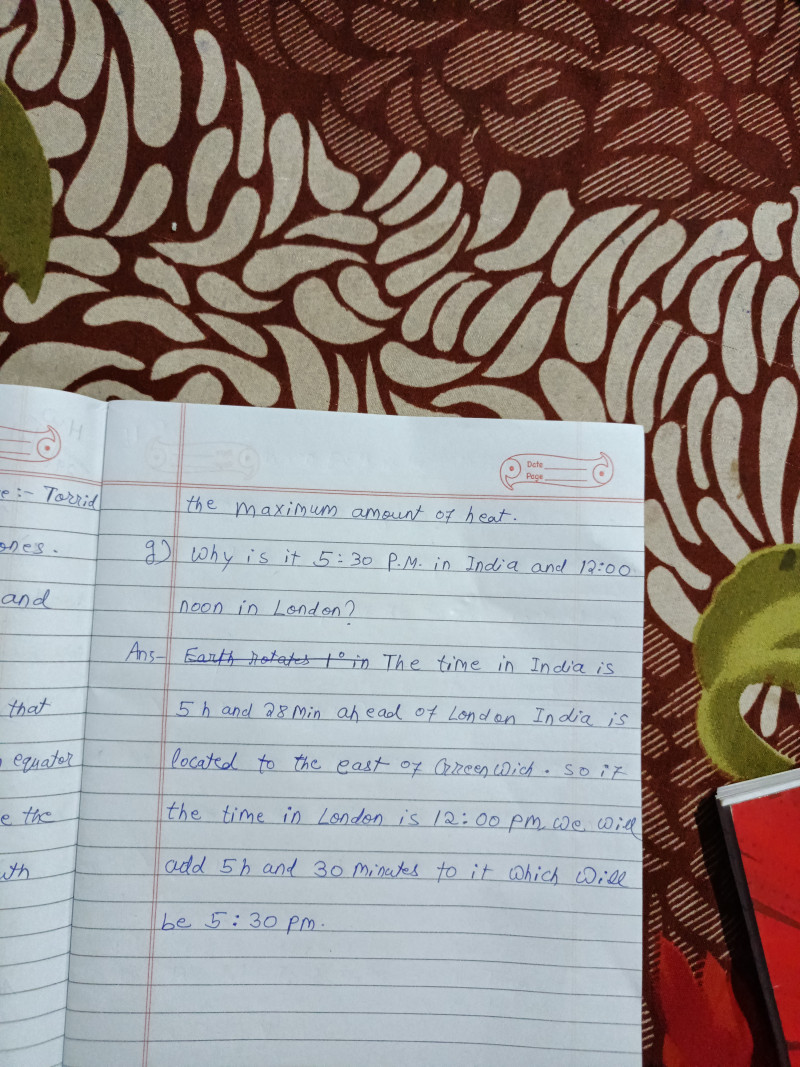 e :- Torrid
ones.
and
that
equator
e the
uth
Date
Page
the maximum amount of heat.
g) Why is it 5:30 P.M. in India and 12:00
noon in London?
Ans- Earth rotates 1° in The time in India is
5 h and 28 Min ahead of London India is
located to the east of Greenwich. So if
the time in London is 12:00 pm we will
add 5h and 30 minutes to it which will
be 5:30 pm.